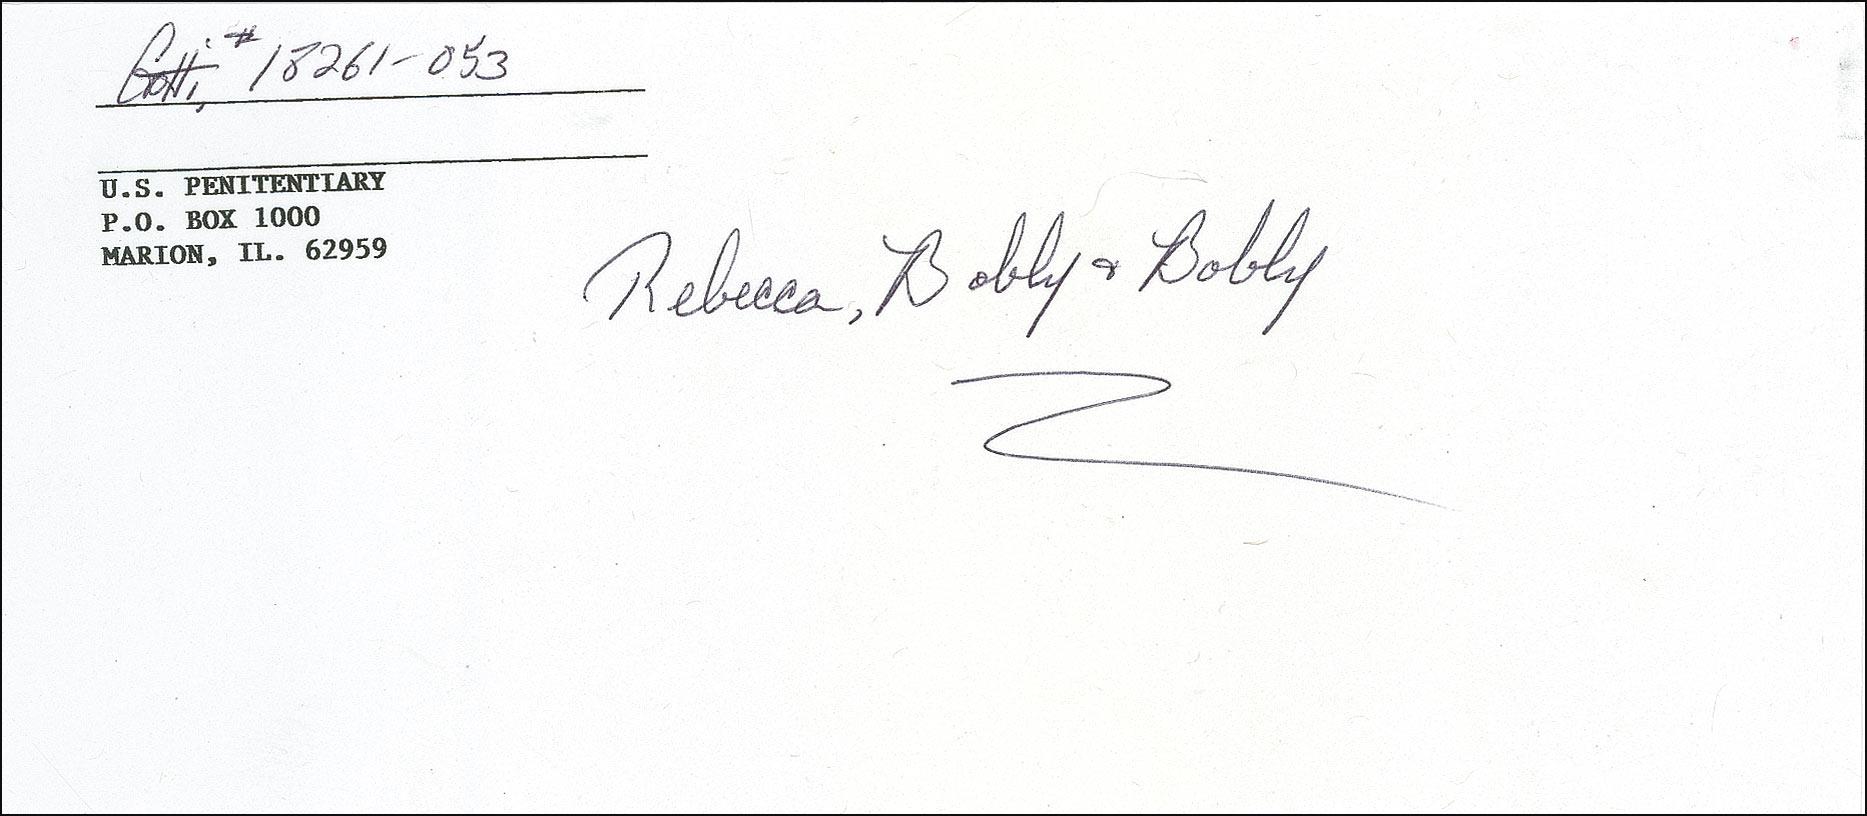 Gotti, # 18261-053
U.S. PENITENTIARY
P.O. BOX 1000
MARION, IL. 62959
Rebecca, Bobby & Bobby